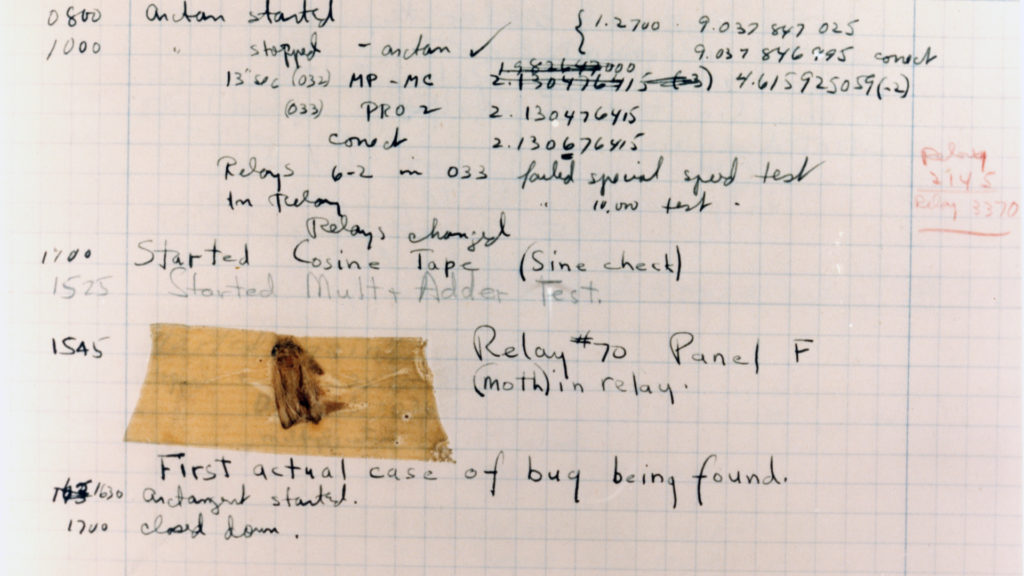 0800 antan started { 1.2700 9.037 847 025
1000 " stopped - antan ✓ 9.037 846 995 conect
1.982647000
13"uc (032) MP - MC 2.130476415 (-3) 4.615925059(-2)
(033) PRO 2 2.130476415
conect 2.130676415
Relays 6-2 in 033 failed special speed test
In Relay " 10,000 test .
Relay
2145
Relay 3370
Relays changed
1700 Started Cosine Tape (Sine check)
1525 Started Mult + Adder Test.
1545 Relay #70 Panel F
(moth) in relay.
First actual case of bug being found.
1630 antangent started.
1700 closed down.